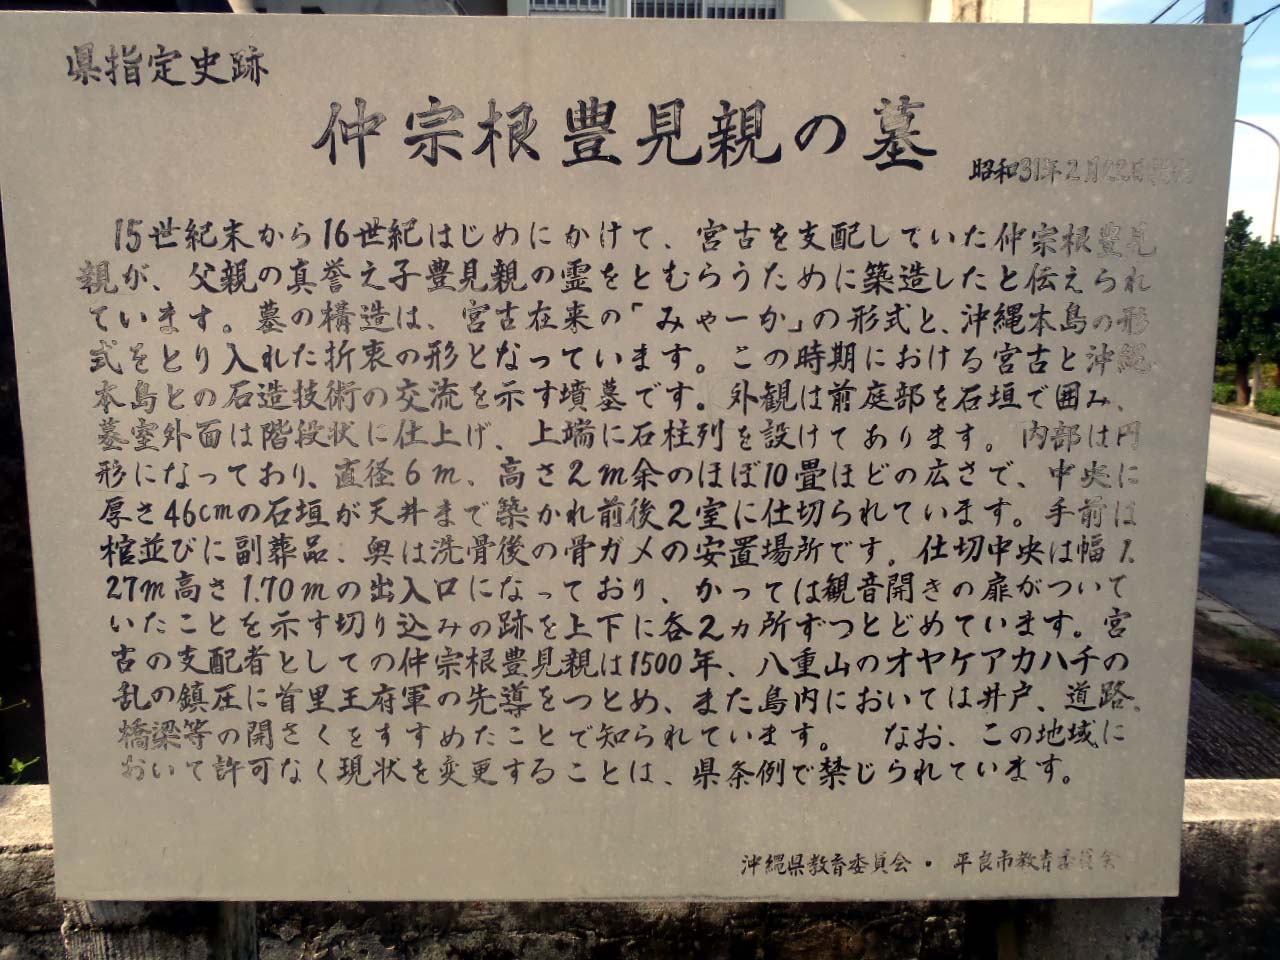 県指定史跡
仲宗根豊見親の墓
昭和31年2月22日
15世紀末から16世紀はじめにかけて、宮古を支配していた仲宗根豊見
親が、父親の真誉え子豊見親の霊をとむらうために築造したと伝えられ
ています。墓の構造は、宮古在来の「みゃーか」の形式と、沖縄本島の形
式をとり入れた折衷の形となっています。この時期における宮古と沖縄
本島との石造技術の交流を示す墳墓です。外観は前庭部を石垣で囲み、
墓室外面は階段状に仕上げ、上端に石柱列を設けてあります。内部は円
形になっており、直径6m、高さ2m余のほぼ10畳ほどの広さで、中央に
厚さ46cmの石垣が天井まで築かれ前後2室に仕切られています。手前は
棺並びに副葬品、奥は洗骨後の骨ガメの安置場所です。仕切中央は幅1.
27m高さ1.70mの出入口になっており、かっては観音開きの扉がついて
いたことを示す切り込みの跡を上下に各2ヵ所ずつとどめています。宮
古の支配者としての仲宗根豊見親は1500年、八重山のオヤケアカハチの
乱の鎮圧に首里王府軍の先導をつとめ、また島内においては井戸、道路、
橋梁等の開さくをすすめたことで知られています。　なお、この地域に
おいて許可なく現状を変更することは、県条例で禁じられています。
沖縄県教育委員会・平良市教育委員会